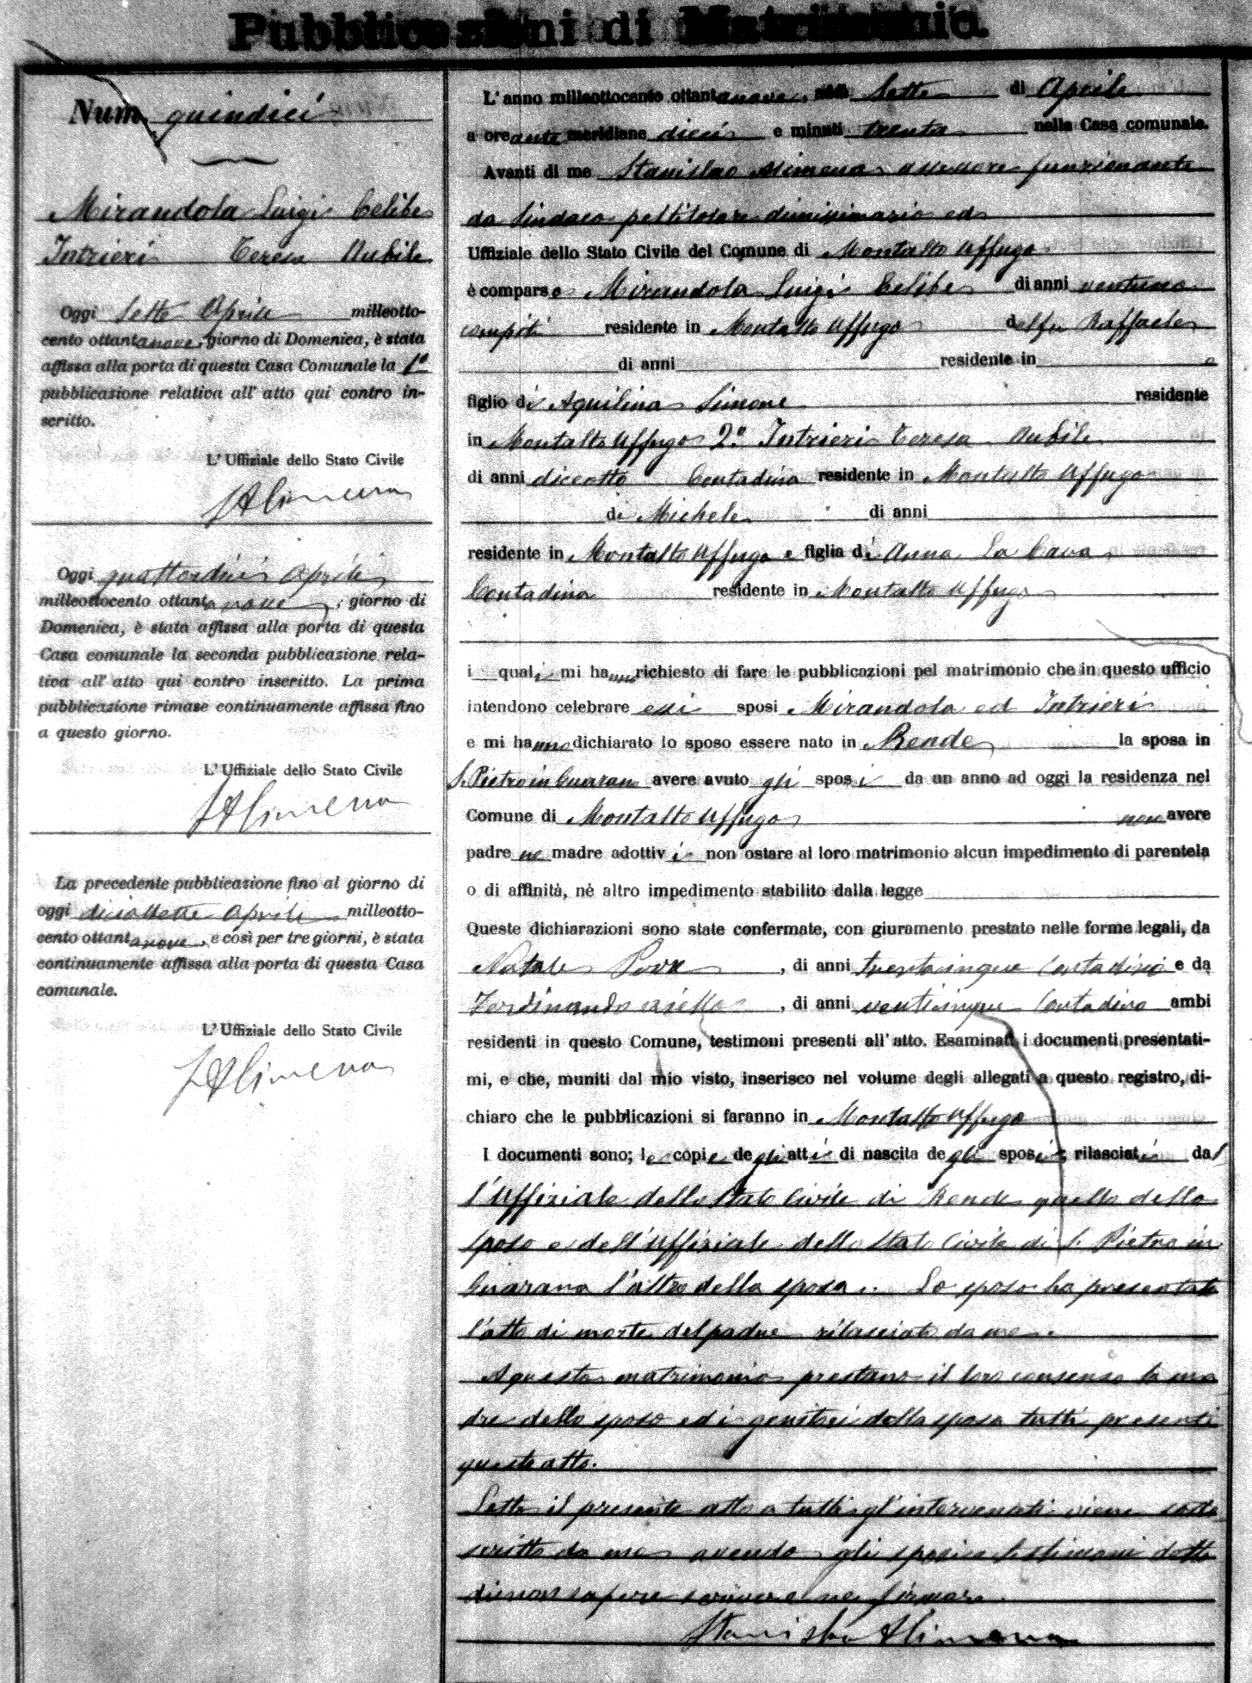 Pubblicazioni di Matrimonio.
Num. quindici
Mirandola Luigi Celibe
Intrieri Teresa Nubile
Oggi Sette Aprile milleotto-
cento ottantanove, giorno di Domenica, è stata
affissa alla porta di questa Casa Comunale la 1a
pubblicazione relativa all' atto qui contro in-
scritto.
L' Uffiziale dello Stato Civile
SAlimena
Oggi quattordici Aprile
milleottocento ottantanove, giorno di
Domenica, è stata affissa alla porta di questa
Casa comunale la seconda pubblicazione rela-
tiva all' atto qui contro inscritto. La prima
pubblicazione rimase continuamente affissa fino
a questo giorno.
L' Uffiziale dello Stato Civile
SAlimena
La precedente pubblicazione fino al giorno di
oggi diciassette Aprile milleotto-
cento ottantanove, e così per tre giorni, è stata
continuamente affissa alla porta di questa Casa
comunale.
L' Uffiziale dello Stato Civile
SAlimena
L' anno milleottocento ottantanove, Sette di Aprile
a ore ante meridiane dieci e minuti trenta nella Casa comunale.
Avanti di me Stanislao Alimena assessore funzionante
da Sindaco pel titolare dimissionario ed
Uffiziale dello Stato Civile del Comune di Montalto Uffugo
è comparso Mirandola Luigi Celibe di anni ventuno
compiti residente in Montalto Uffugo del fu Raffaele
di anni residente in e
figlio di Aquilina Simone residente
in Montalto Uffugo 2º Intrieri Teresa Nubile
di anni diciotto Contadina residente in Montalto Uffugo
di Michele di anni
residente in Montalto Uffugo e figlia di Anna La Cava
Contadina residente in Montalto Uffugo
i quali mi hanno richiesto di fare le pubblicazioni pel matrimonio che in questo ufficio
intendono celebrare essi sposi Mirandola ed Intrieri
e mi hanno dichiarato lo sposo essere nato in Rende la sposa in
S. Pietro in Guarano avere avuto gli sposi da un anno ad oggi la residenza nel
Comune di Montalto Uffugo non avere
padre ne madre adottivi non ostare al loro matrimonio alcun impedimento di parentela
o di affinità, nè altro impedimento stabilito dalla legge
Queste dichiarazioni sono state confermate, con giuramento prestato nelle forme legali, da
Natale , di anni trentacinque Contadino e da
Ferdinando Aiello , di anni venticinque Contadino ambi
residenti in questo Comune, testimoni presenti all' atto. Esaminati i documenti presentati-
mi, e che, muniti dal mio visto, inserisco nel volume degli allegati a questo registro, di-
chiaro che le pubblicazioni si faranno in Montalto Uffugo
I documenti sono; le copie degli atti di nascita degli sposi, rilasciati dal
l'Uffiziale dello Stato Civile di Rende quello dello
sposo e dell'Uffiziale dello Stato Civile di S. Pietro in
Guarano l'altro della sposa. Lo sposo ha presentato
l'atto di morte del padre rilasciato da me.
A questo matrimonio prestano il loro consenso la ma
dre dello sposo ed i genitori della sposa tutti presenti
quest'atto.
Letto il presente atto a tutti gl'intervenuti viene sotto
scritto da me avendo gli sposi e testimoni detto
di non sapere scrivere ne firmare
Stanislao Alimena